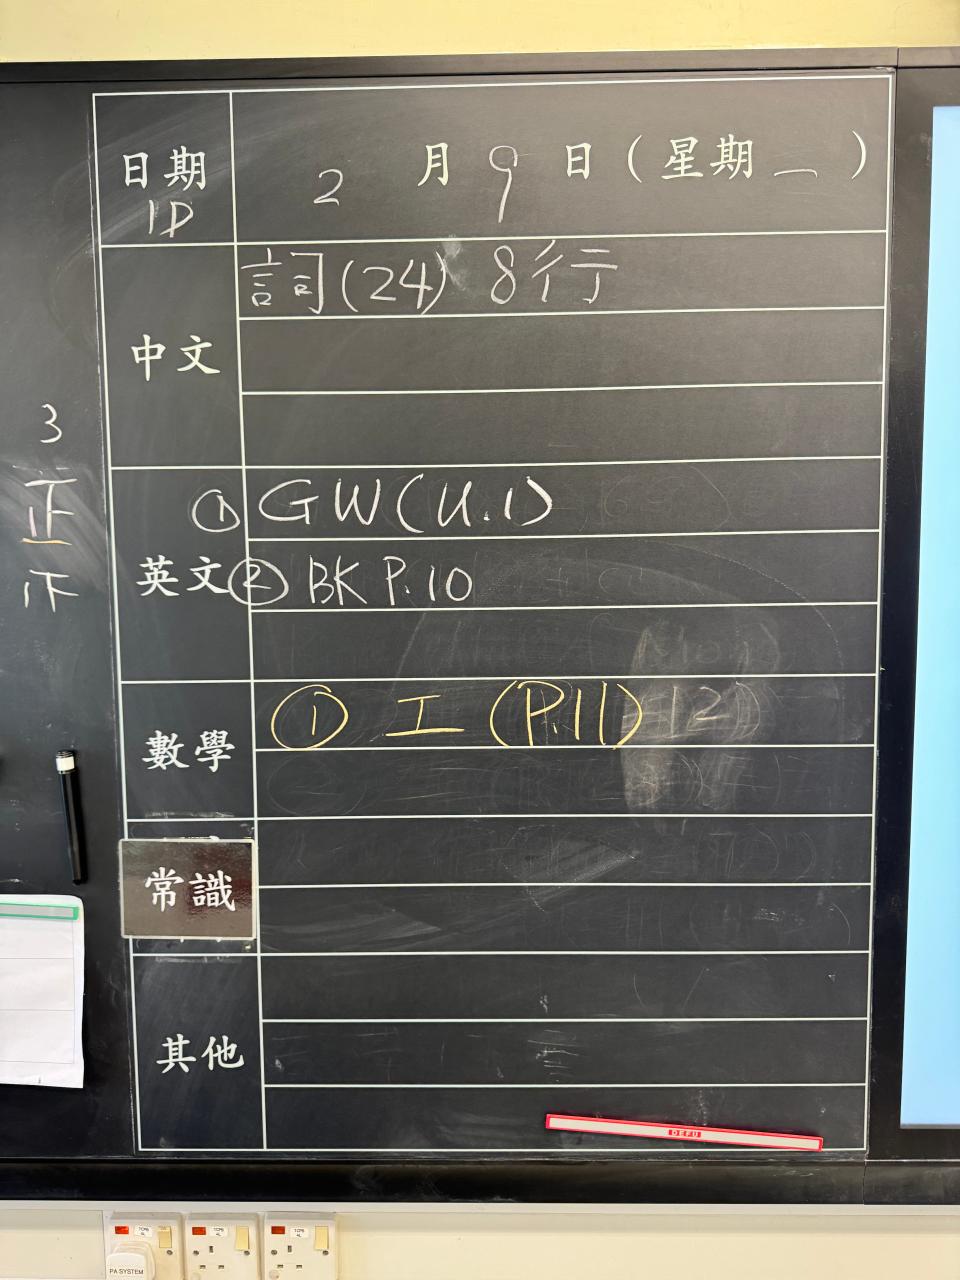 日期 2月9日(星期一)
1D
中文
詞(24) 8行
英文
① GW(U.1)
② BK P.10
數學
① 工 (P.11)
常識
其他
3
正
DEFU
PA SYSTEM